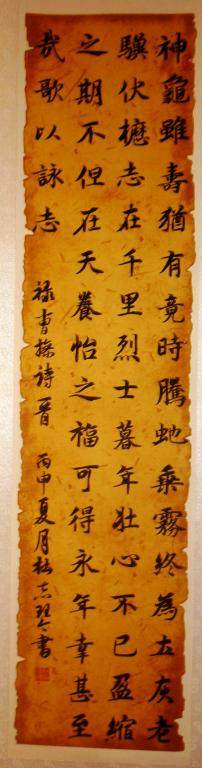 神龜雖壽猶有竟時騰虵乘霧終為土灰老
驥伏櫪志在千里烈士暮年壯心不已盈縮
之期不但在天養怡之福可得永年幸甚至
哉歌以詠志
禄曹操詩一首 丙申夏月 書